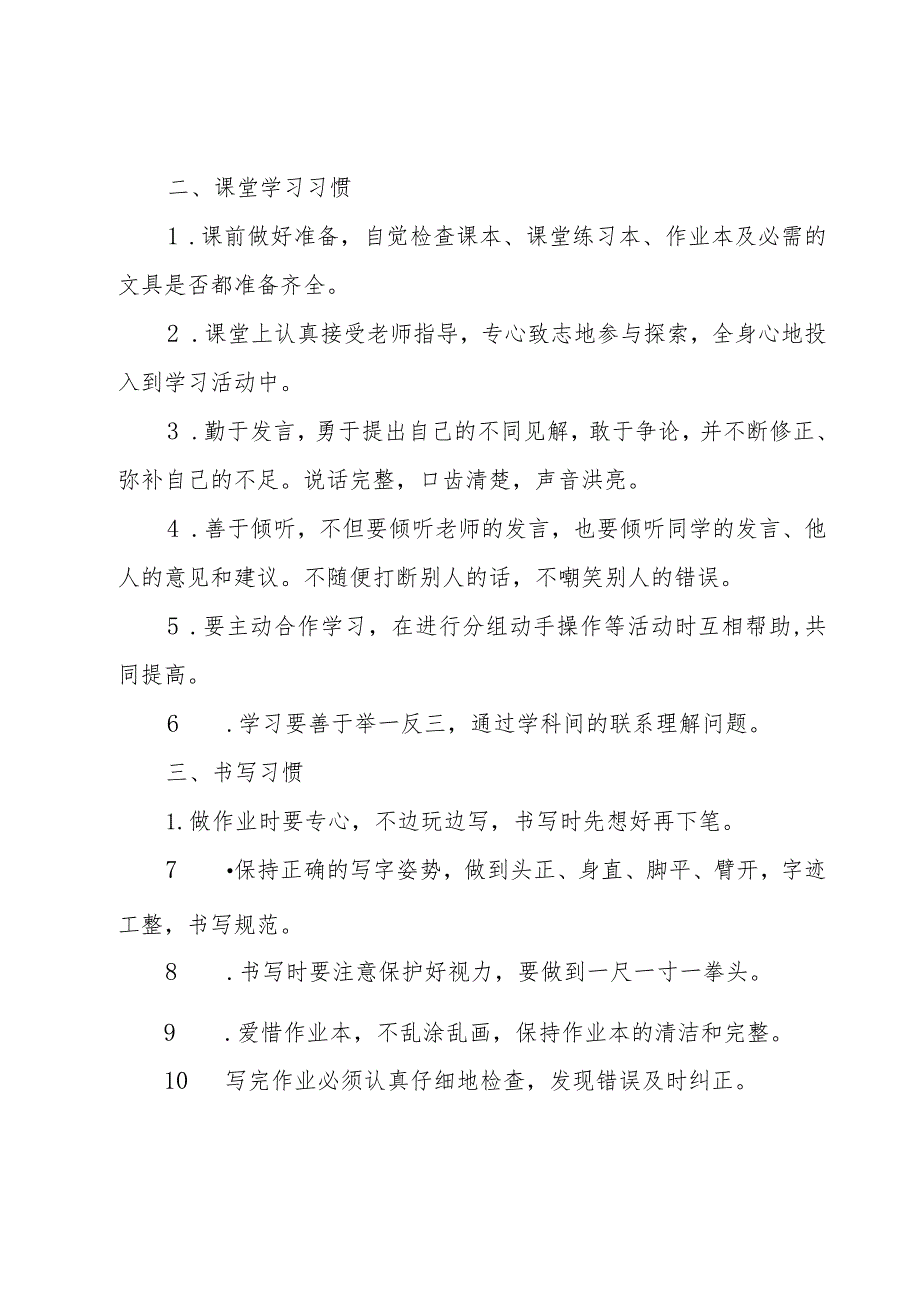 二、课堂学习习惯
1 .课前做好准备，自觉检查课本、课堂练习本、作业本及必需的
文具是否都准备齐全。
2 .课堂上认真接受老师指导，专心致志地参与探索，全身心地投
入到学习活动中。
3 .勤于发言，勇于提出自己的不同见解，敢于争论，并不断修正、
弥补自己的不足。说话完整，口齿清楚，声音洪亮。
4 .善于倾听，不但要倾听老师的发言，也要倾听同学的发言、他
人的意见和建议。不随便打断别人的话，不嘲笑别人的错误。
5 .要主动合作学习，在进行分组动手操作等活动时互相帮助,共
同提高。
6 .学习要善于举一反三，通过学科间的联系理解问题。
三、书写习惯
1.做作业时要专心，不边玩边写，书写时先想好再下笔。
7 •保持正确的写字姿势，做到头正、身直、脚平、臂开，字迹
工整，书写规范。
8 .书写时要注意保护好视力，要做到一尺一寸一拳头。
9 .爱惜作业本，不乱涂乱画，保持作业本的清洁和完整。
10 写完作业必须认真仔细地检查，发现错误及时纠正。